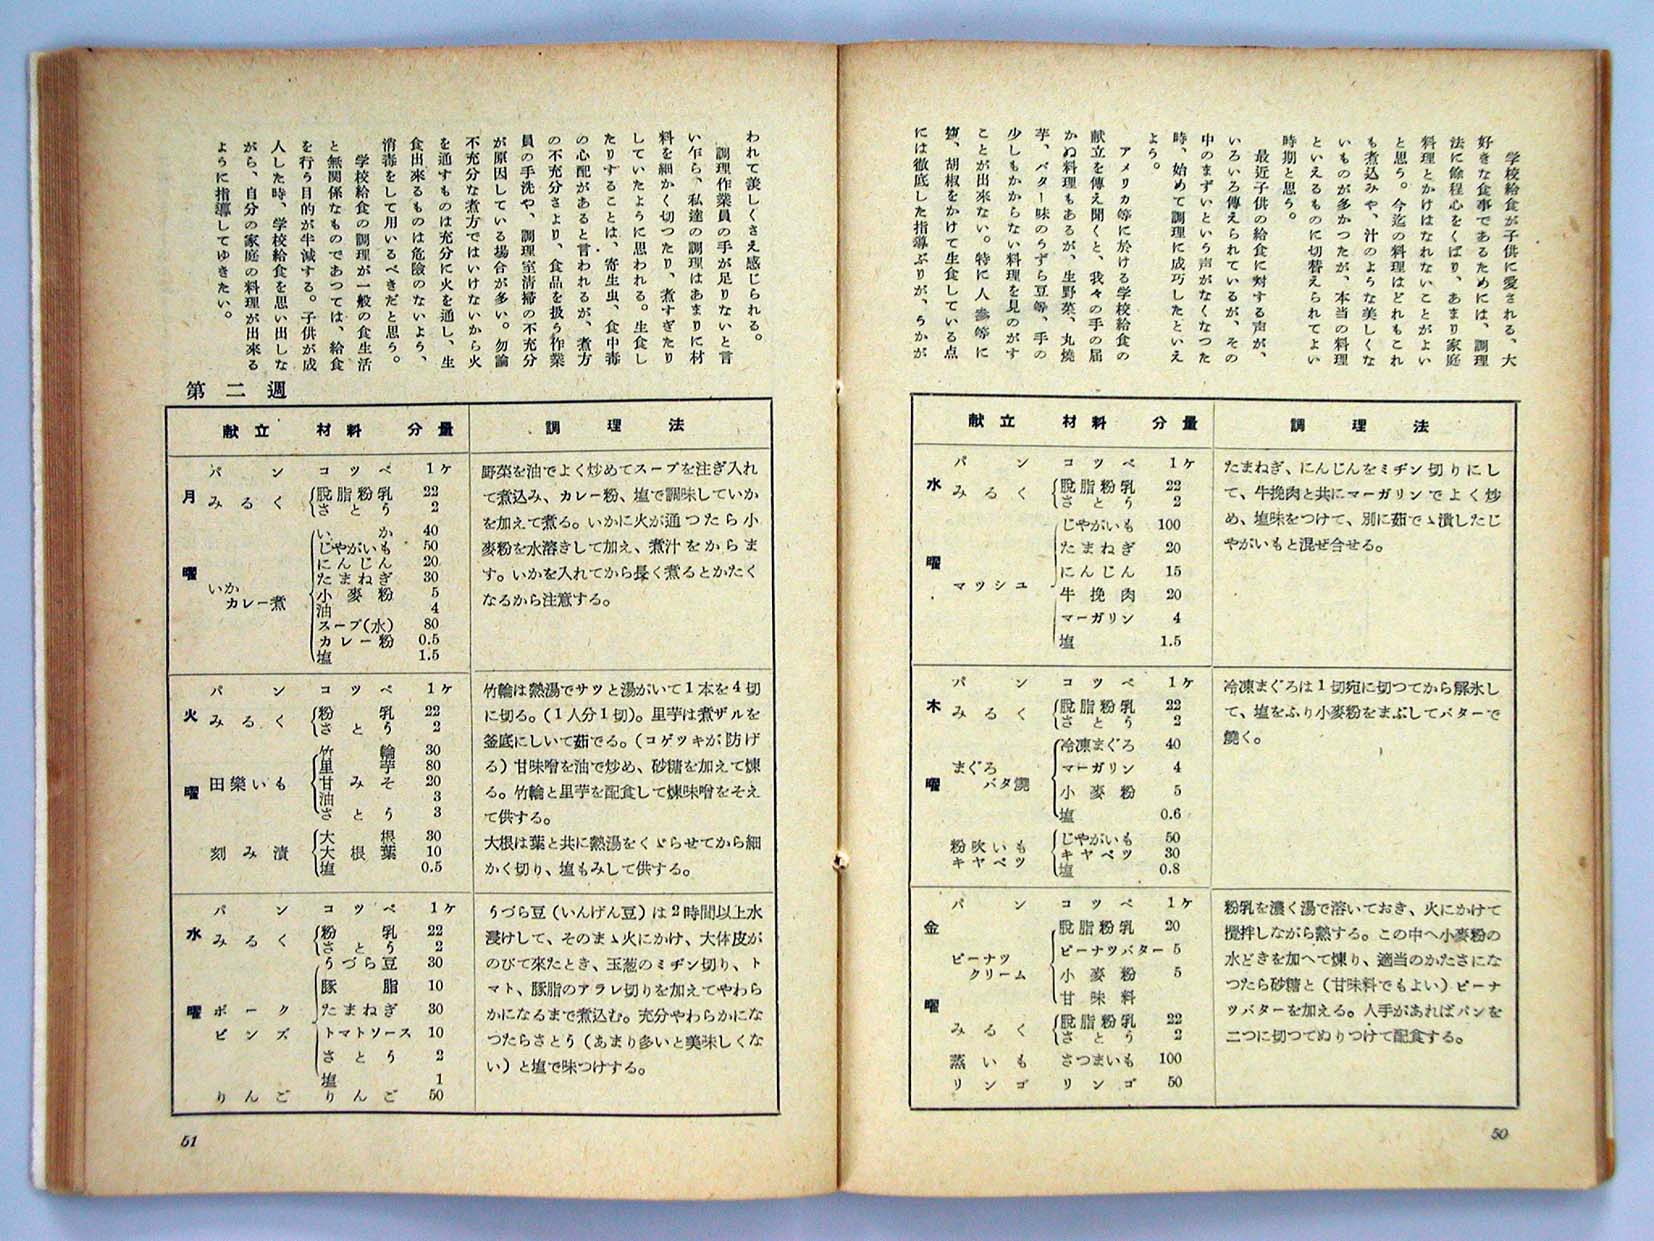 学校給食が子供に愛される、大
好きな食事であるためには、調理
法に餘程心をくばり、あまり家庭
料理とかけはなれないことがよい
と思う。今迄の料理はどれもこれ
も煮込みや、汁のような美しくな
いものが多かつたが、本当の料理
といえるものに切替えられてよい
時期と思う。
最近子供の給食に対する声が、
いろいろ傳えられているが、その
中のまずいという声がなくなつた
時、始めて調理に成巧したといえ
よう。
アメリカ等に於ける学校給食の
献立を傳え聞くと、我々の手の届
かぬ料理もあるが、生野菜、丸燒
芋、バター味のうずら豆等、手の
少しもかからない料理を見のがす
ことが出来ない。特に人参等に
塩、胡椒をかけて生食している点
には徹底した指導ぶりが、うかが
献立 材料 分量 調理法
水曜
パン コツペ 1ケ
みるく 脱脂粉乳 22
さとう 2
マツシユ
じやがいも 100
たまねぎ 20
にんじん 15
牛挽肉 20
マーガリン 4
塩 1.5
たまねぎ、にんじんをミヂン切りにし
て、牛挽肉と共にマーガリンでよく炒
め、塩味をつけて、別に茹でゝ潰したじ
やがいもと混ぜ合せる。
木曜
パン コツペ 1ケ
みるく 脱脂粉乳 22
さとう 2
まぐろ
バタ燒
冷凍まぐろ 40
マーガリン 4
小麥粉 5
塩 0.6
粉吹いも じやがいも 50
キヤベツ キヤベツ 30
塩 0.8
冷凍まぐろは1切宛に切つてから解氷し
て、塩をふり小麥粉をまぶしてバターで
燒く。
金曜
パン コツペ 1ケ
ピーナツ
クリーム
脱脂粉乳 20
ピーナツバター 5
小麥粉 5
甘味料
みるく 脱脂粉乳 22
さとう 2
蒸いも さつまいも 100
リンゴ リンゴ 50
粉乳を濃く湯で溶いておき、火にかけて
攪拌しながら熱する。この中へ小麥粉の
水どきを加へて煉り、適当のかたさにな
つたら砂糖と(甘味料でもよい)ピーナ
ツバターを加える。人手があればパンを
二つに切つてぬりつけて配食する。
50
われて羨しくさえ感じられる。
調理作業員の手が足りないと言
い乍ら、私達の調理はあまりに材
料を細かく切つたり、煮すぎたり
していたように思われる。生食し
たりすることは、寄生虫、食中毒
の心配があると言われるが、煮方
の不充分さより、食品を扱う作業
員の手洗や、調理室清掃の不充分
が原因している場合が多い。勿論
不充分な煮方ではいけないから火
を通すものは充分に火を通し、生
食出来るものは危險のないよう、
消毒をして用いるべきだと思う。
学校給食の調理が一般の食生活
と無関係なものであつては、給食
を行う目的が半減する。子供が成
人した時、学校給食を思い出しな
がら、自分の家庭の料理が出来る
ように指導してゆきたい。
第二週
献立 材料 分量 調理法
月曜
パン コツペ 1ケ
みるく 脱脂粉乳 22
さとう 2
いか
カレー煮
いか 40
じやがいも 50
にんじん 20
たまねぎ 30
小麥粉 5
油 4
スープ(水) 80
カレー粉 0.5
塩 1.5
野菜を油でよく炒めてスープを注ぎ入れ
て煮込み、カレー粉、塩で調味していか
を加えて煮る。いかに火が通つたら小
麥粉を水溶きして加え、煮汁をからま
す。いかを入れてから長く煮るとかたく
なるから注意する。
火曜
パン コツペ 1ケ
みるく 粉乳 22
さとう 2
田樂いも
竹輪 30
里芋 80
甘みそ 20
油 3
さとう 3
刻み漬 大根 30
大根葉 10
塩 0.5
竹輪は熱湯でサツと湯がいて1本を4切
に切る。(1人分1切)。里芋は煮ザルを
釜底にしいて茹でる。(コゲツキが防げ
る)甘味噌を油で炒め、砂糖を加えて煉
る。竹輪と里芋を配食して煉味噌をそえ
て供する。
大根は葉と共に熱湯をくゞらせてから細
かく切り、塩もみして供する。
水曜
パン コツペ 1ケ
みるく 粉乳 22
さとう 2
ポーク
ビンズ
うづら豆 30
豚脂 10
たまねぎ 30
トマトソース 10
さとう 2
塩 1
りんご りんご 50
うづら豆(いんげん豆)は2時間以上水
浸けして、そのまゝ火にかけ、大体皮が
のびて來たとき、玉葱のミヂン切り、ト
マト、豚脂のアラレ切りを加えてやわら
かになるまで煮込む。充分やわらかにな
つたらさとう(あまり多いと美味しくな
い)と塩で味つけする。
51